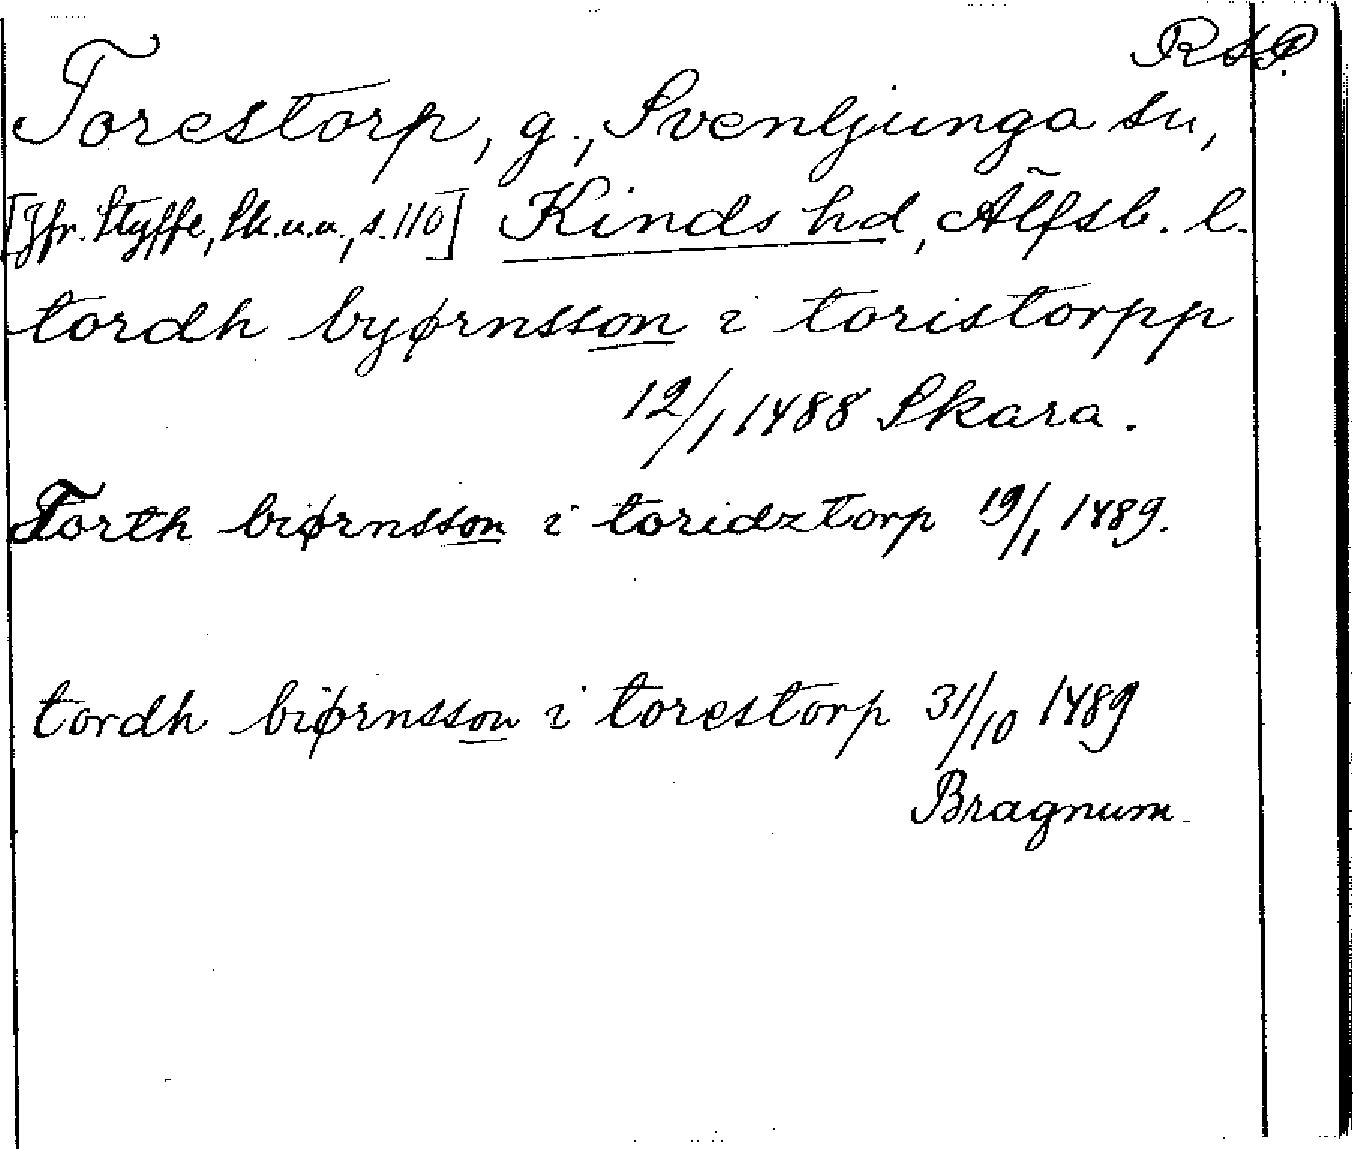 RAP.
Torestorp, g., Svenljunga sn,
[Jfr. Styffe, Sk.u.u., s.110] Kinds hd, Älfsb. l.
tordh byørnsson i toristorpp
12/1 1488 Skara.
Torth biørnsson i toridztorp 19/1 1489.
tordh biørnsson i torestorp 31/10 1489
Bragnum